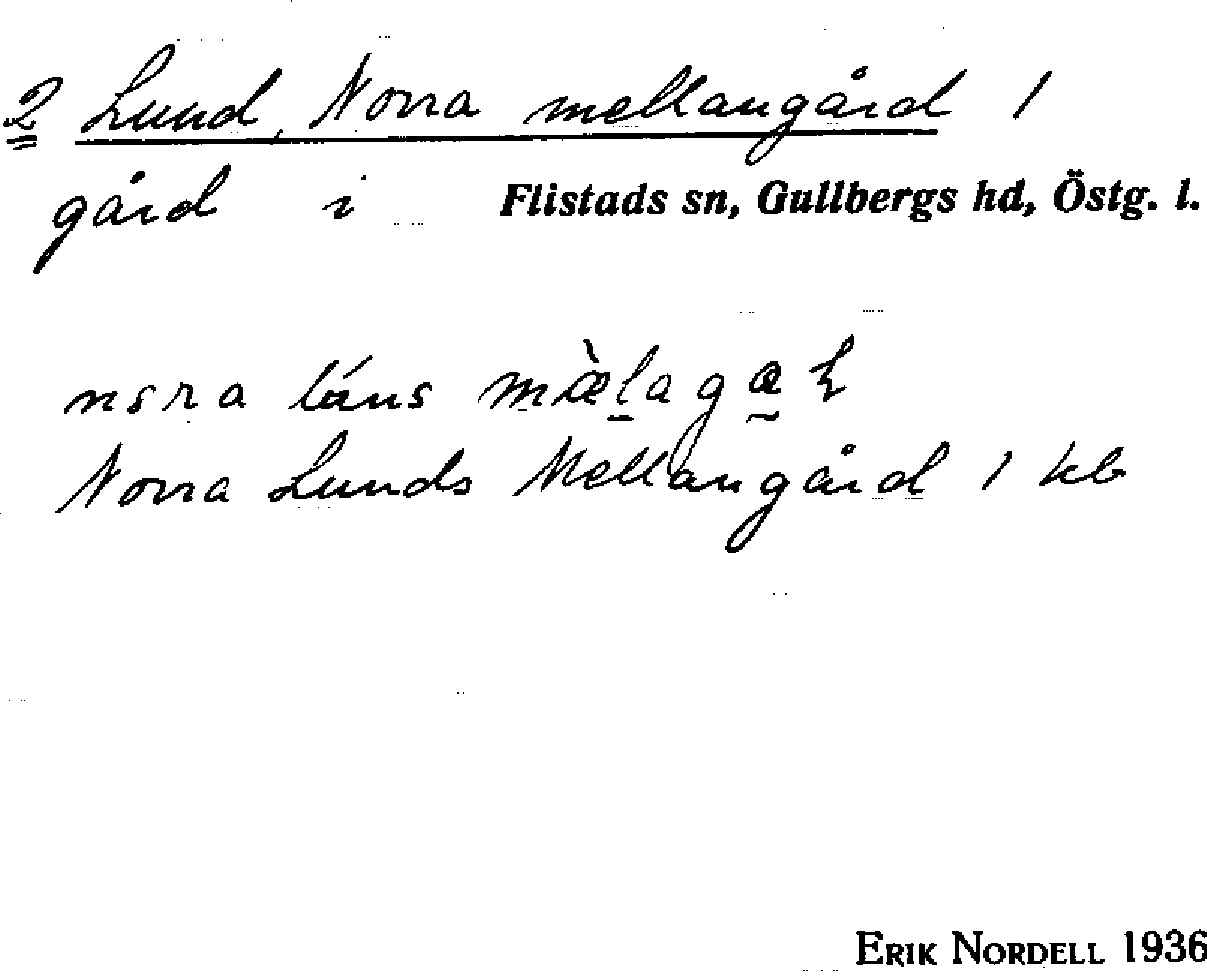 2 Lund, Norra mellangård 1
gård i Flistads sn, Gullbergs hd, Östg. l.
Norra Lunds Mellangård 1 kb
ERIK NORDELL 1936